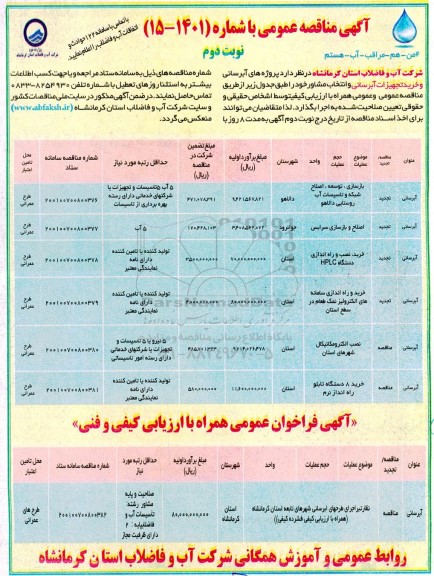 آگهی مناقصه عمومی با شماره (۱۴۰۱-۱۵)
نوبت دوم
با تماس با سامانه ۱۲۲ حوادث و
اتفاقات آب و فاضلاب را اعلام نمایید.
#من-هم-مراقب-آب-هستم
شرکت آب و فاضلاب استان کرمانشاه در نظر دارد پروژه های آبرسانی
و خرید تجهیزات آبرسانی و انتخاب مشاور خود را طبق جدول زیر از طریق
مناقصه عمومی و عمومی همراه با ارزیابی کیفی توسط اشخاص حقیقی و
حقوقی تعیین صلاحیت شده به اجرا بگذارد. لذا متقاضیان می توانند
برای اخذ اسناد مناقصه از تاریخ درج نوبت دوم آگهی به مدت ۸ روز با
شماره مناقصه های ذیل به سامانه ستاد مراجعه و یا جهت کسب اطلاعات
بیشتر به استثناء روزهای تعطیل با شماره تلفن ۸۲۵۴۹۳۰-۰۸۳۳
تماس حاصل نمایند. در ضمن آگهی مذکور در سایت ملی مناقصات کشور
و سایت شرکت آب و فاضلاب استان کرمانشاه (www.abfaksh.ir)
منعکس می گردد.
عنوان مناقصه/تجدید موضوع عملیات حجم عملیات واحد شهرستان مبلغ برآورد اولیه (ریال) مبلغ تضمین شرکت در مناقصه (ریال) حداقل رتبه مورد نیاز شماره مناقصه سامانه ستاد محل تامین اعتبار
آبرسانی تجدید بازسازی، توسعه، اصلاح شبکه و تاسیسات آب روستایی دالاهو دالاهو ۵ آب یا تاسیسات و تجهیزات یا شرکتهای خدماتی دارای رسته بهره برداری از تاسیسات ۲۰۰۱۰۰۷۰۰۸۰۰۰۳۷۶ طرح عمرانی
آبرسانی تجدید اصلاح و بازسازی سرابس جوانرود ۵ آب ۲۰۰۱۰۰۷۰۰۸۰۰۰۳۷۷ طرح عمرانی
آبرسانی تجدید خرید، نصب و راه اندازی دستگاه HPLC استان تولید کننده یا تامین کننده دارای نامه نمایندگی معتبر ۲۰۰۱۰۰۷۰۰۸۰۰۰۳۷۸ طرح عمرانی
آبرسانی تجدید خرید و راه اندازی سامانه های الکترولیز نمک طعام در سطح استان استان تولید کننده یا تامین کننده دارای نامه نمایندگی معتبر ۲۰۰۱۰۰۷۰۰۸۰۰۰۳۷۹ طرح عمرانی
آبرسانی مناقصه نصب الکترومکانیکال شهرهای استان استان ۵ نیرو یا ۵ تاسیسات و تجهیزات یا شرکتهای خدماتی دارای رسته امور تاسیساتی ۲۰۰۱۰۰۷۰۰۸۰۰۰۳۸۰ طرح عمرانی
آبرسانی مناقصه خرید ۸ دستگاه تابلو راه انداز نرم استان ۱۱,۶۰۰,۰۰۰,۰۰۰ ۵۸۰,۰۰۰,۰۰۰ تولید کننده یا تامین کننده دارای نامه نمایندگی معتبر ۲۰۰۱۰۰۷۰۰۸۰۰۰۳۸۱ طرح عمرانی
«آگهی فراخوان عمومی همراه با ارزیابی کیفی و فنی»
عنوان مناقصه/تجدید موضوع عملیات حجم عملیات واحد شهرستان مبلغ برآورد اولیه (ریال) حداقل رتبه مورد نیاز شماره مناقصه سامانه ستاد محل تامین اعتبار
آبرسانی مناقصه نظارت بر اجرای طرحهای آبرسانی شهرهای تابعه استان کرمانشاه (همراه با ارزیابی کیفی فشرده کیفی) استان کرمانشاه ۸۰,۰۰۰,۰۰۰,۰۰۰ صلاحیت و پایه مشاور رشته تاسیسات آب و فاضلاب پایه ۲ دارای ظرفیت مجاز ۲۰۰۱۰۰۷۰۰۸۰۰۰۳۸۲ طرح های عمرانی
روابط عمومی و آموزش همگانی شرکت آب و فاضلاب استان کرمانشاه